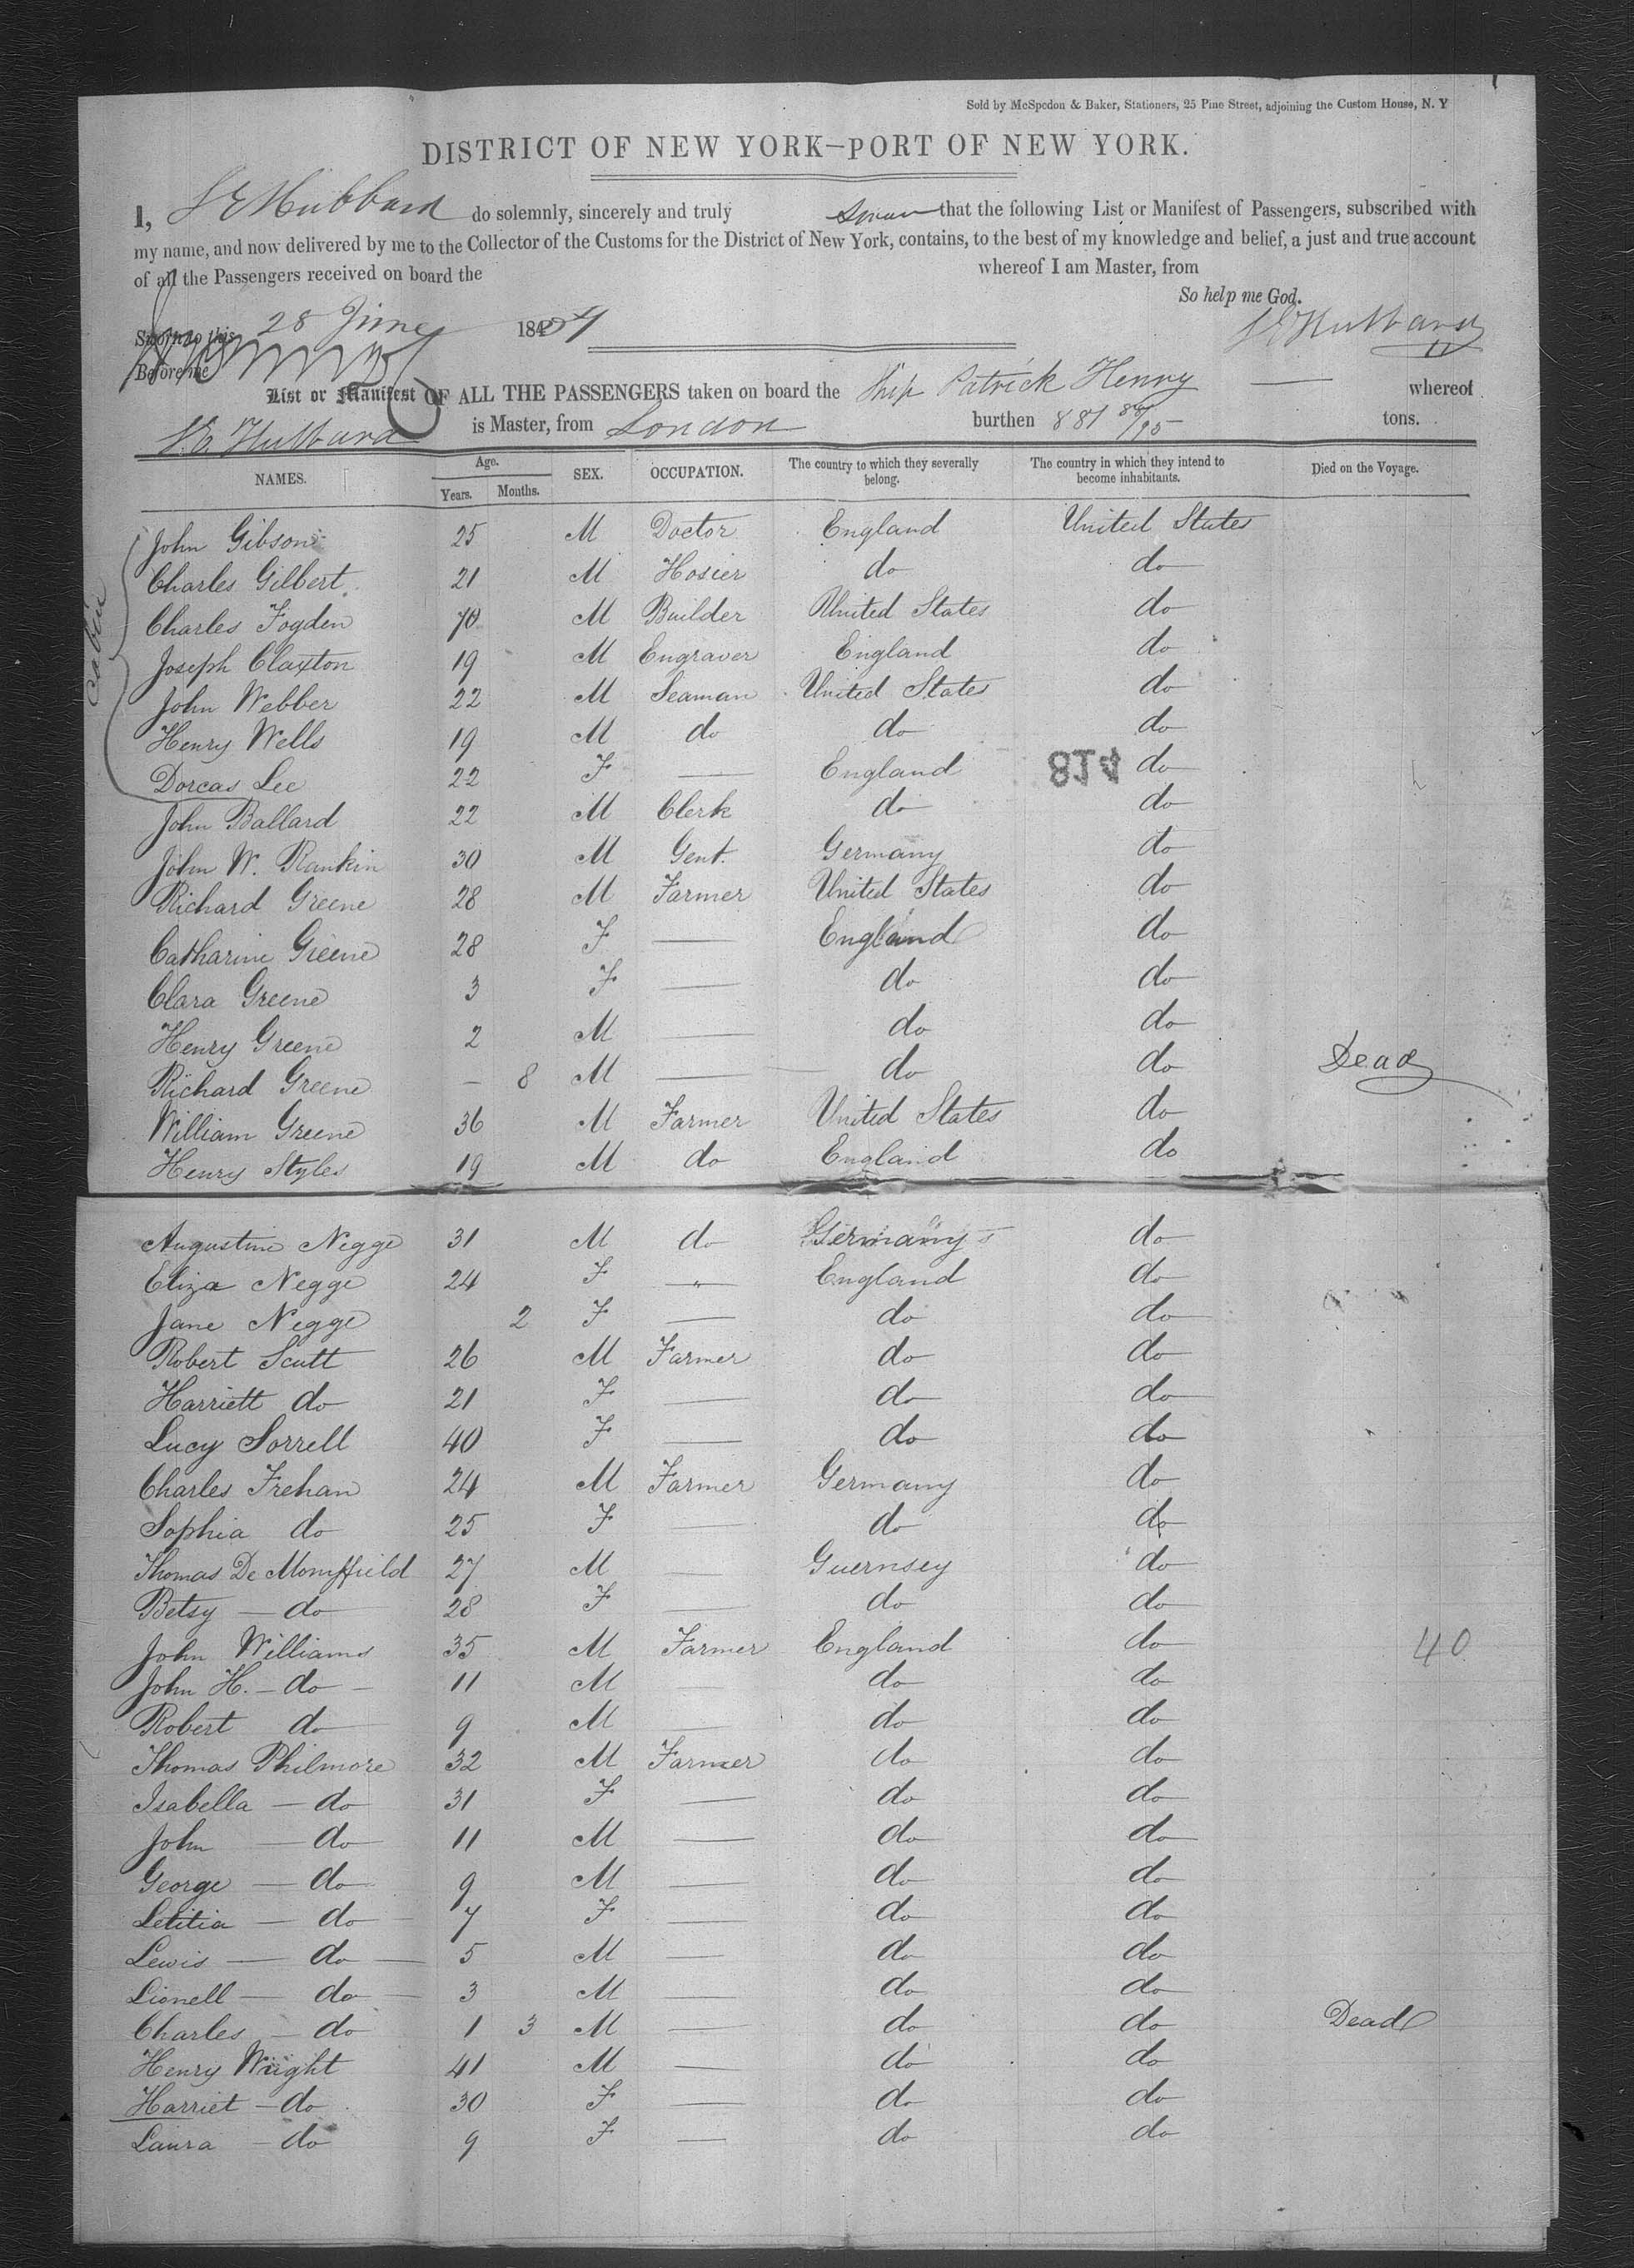 Sold by McSpedon & Baker, Stationers, 25 Pine Street, adjoining the Custom House, N. Y
DISTRICT OF NEW YORK—PORT OF NEW YORK.
I, S E Hubbard do solemnly, sincerely and truly swear that the following List or Manifest of Passengers, subscribed with
my name, and now delivered by me to the Collector of the Customs for the District of New York, contains, to the best of my knowledge and belief, a just and true account
of all the Passengers received on board the whereof I am Master, from
So help me God.
Sworn to this 28 June 184 S E Hubbard
Before me
List or Manifest OF ALL THE PASSENGERS taken on board the Ship Patrick Henry whereof
S. E. Hubbard is Master, from London burthen 881 /95 tons.
NAMES. Age. Years. Months. SEX. OCCUPATION. The country to which they severally belong. The country in which they intend to become inhabitants. Died on the Voyage.
cabin
John Gibson 25 M Doctor England United States
Charles Gilbert 21 M Hosier do do
Charles Fogden 70 M Builder United States do
Joseph Claxton 19 M Engraver England do
John Webber 22 M Seaman United States do
Henry Wells 19 M do do do
Dorcas Lee 22 F — England 814 do
John Ballard 22 M Clerk do do
John W. Rankin 30 M Gent. Germany do
Richard Greene 28 M Farmer United States do
Catharine Greene 28 F — England do
Clara Greene 3 F — do do
Henry Greene 2 M — do do
Richard Greene — 8 M — do do Dead
William Greene 36 M Farmer United States do
Henry Styles 19 M do England do
Augustine Negge 31 M do Germany do
Eliza Negge 24 F — England do
Jane Negge 2 F — do do
Robert Scutt 26 M Farmer do do
Harriett do 21 F — do do
Lucy Sorrell 40 F — do do
Charles Frehan 24 M Farmer Germany do
Sophia do 25 F — do do
Thomas De 27 M — Guernsey do
Betsy — do 28 F — do do
John Williams 35 M Farmer England do 40
John H. — do — 11 M — do do
Robert do 9 M — do do
Thomas Philmore 32 M Farmer do do
Isabella — do 31 F — do do
John — do 11 M — do do
George — do 9 M — do do
Letitia — do 7 F — do do
Lewis — do 5 M — do do
Lionell — do 3 M — do do
Charles — do 1 3 M — do do Dead
Henry Wright 41 M — do do
Harriet — do 30 F — do do
Laura — do 9 F — do do